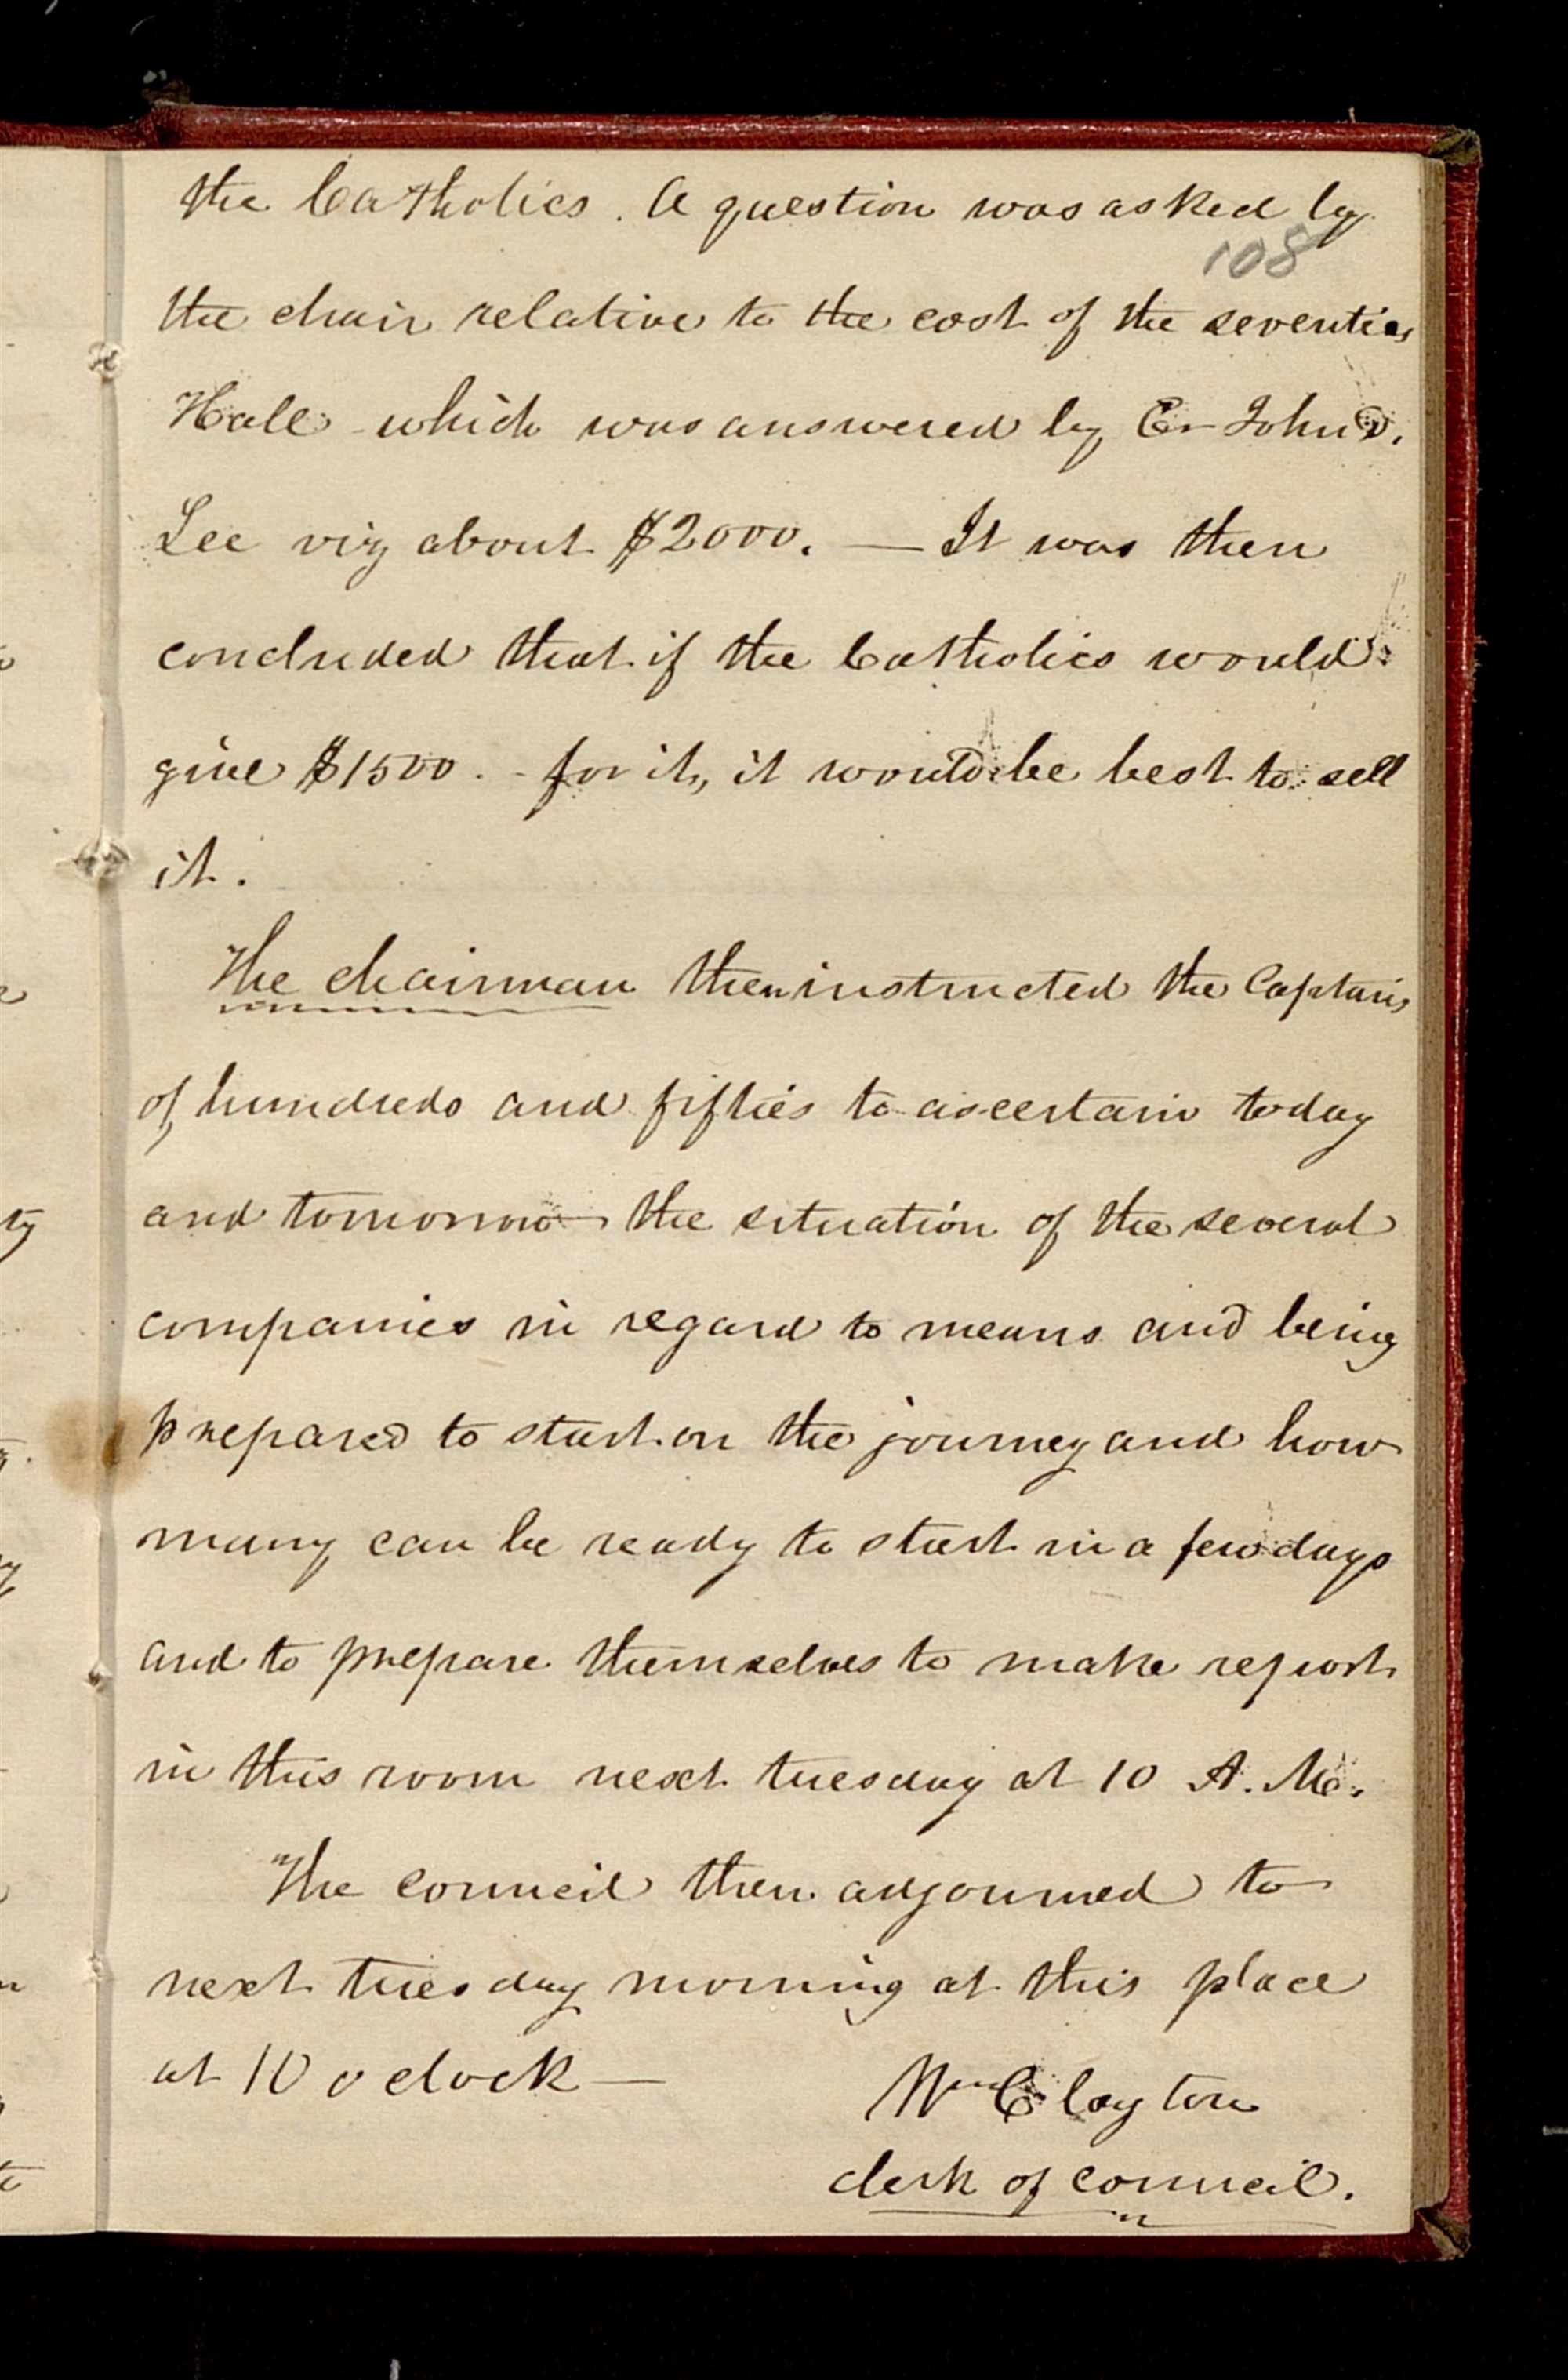 the Catholics. A question was asked by
108
the chair relative to the cost of the seventies
Hall which was answered by Er John D.
Lee viz about $2000. — It was then
concluded that if the Catholics would
give $1500. - for it, it would be best to sell
it.
The chairman then instructed the Captains
of hundreds and fifties to ascertain today
and tomorrow the situation of the several
companies in regard to means and being
prepared to start on the journey and how
many can be ready to start in a few days
and to prepare themselves to make report
in this room next tuesday at 10 A. M.
The council then adjourned to
next tuesday morning at this place
at 10 o clock —
Wm Clayton
clerk of council.